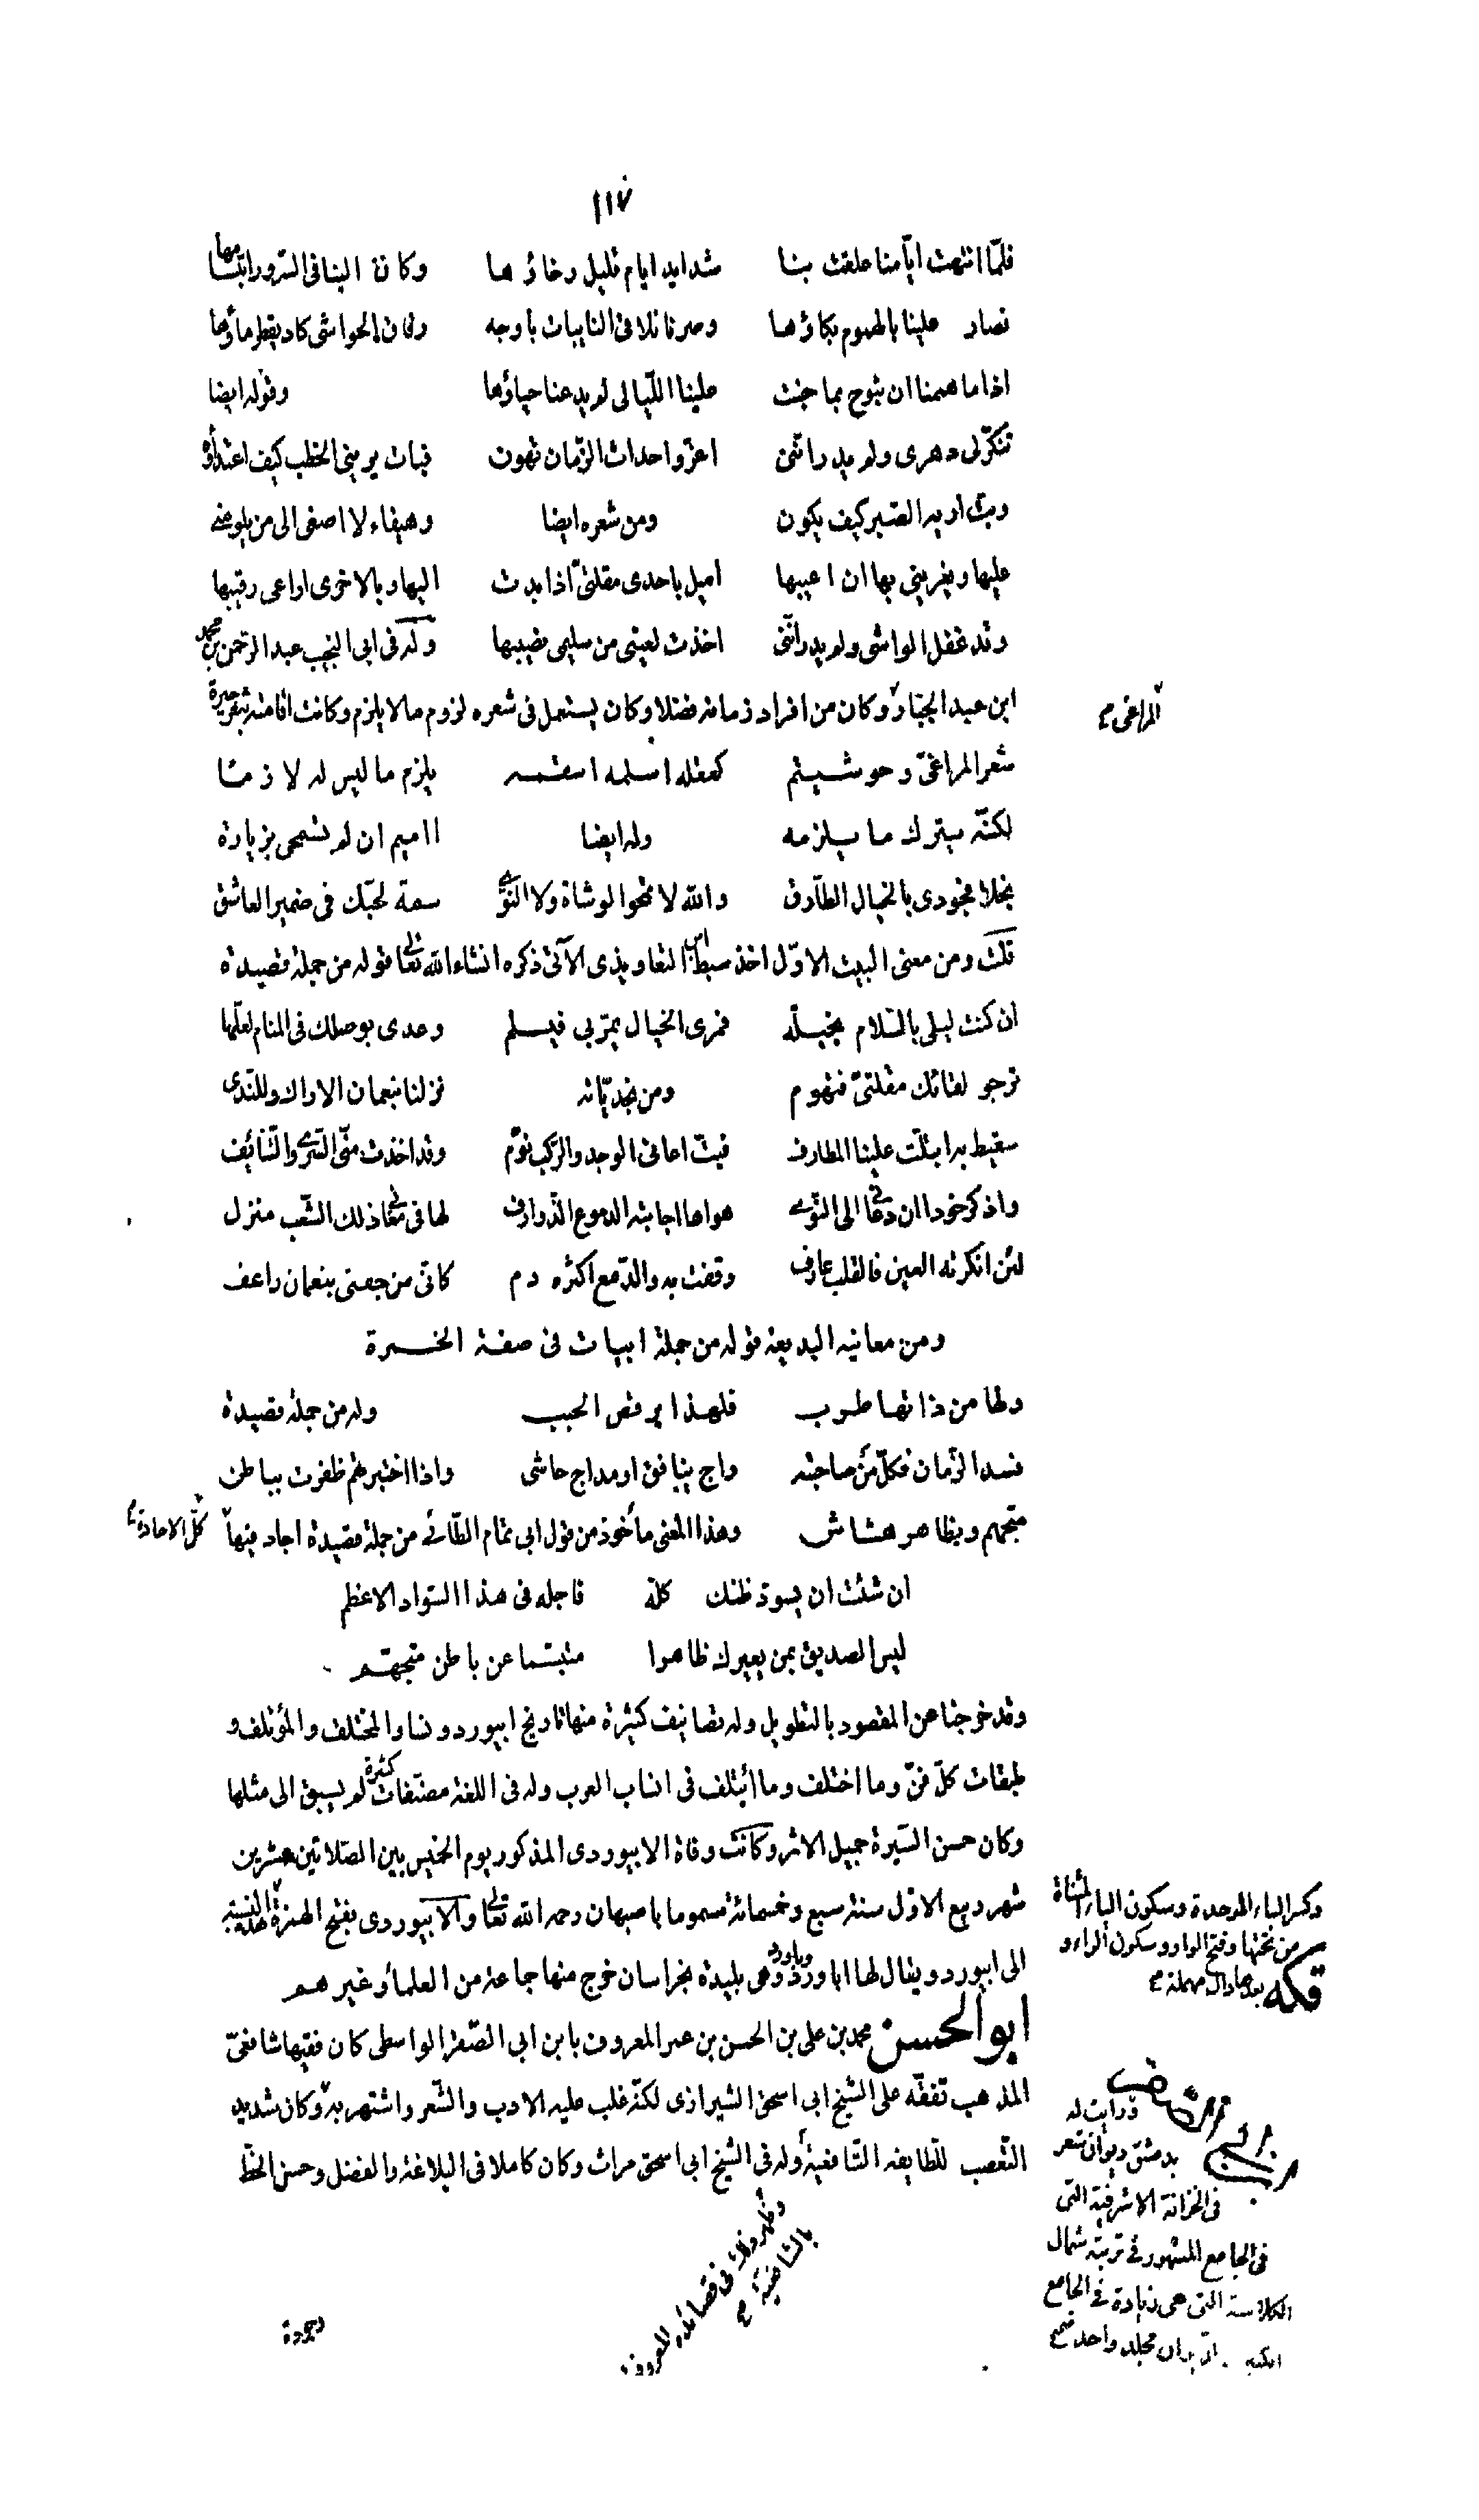 ١١٧
فلمّا انتهت ايّامنا علقت بنا شدايد ايام قليل رخاؤها وكان الينا فى السّرور ابتسامها
فصار علينا بالهموم بكاؤها وصرنا نلاقى النايبات باوجه رقاق الحواشى كاد يقطر ماؤها
اذا ما هممنا ان نبوح بما جنت علينا اللّيالى لم يدعنا حياؤها وقوله ايضا
تنكّر لى دهرى ولم يدر انّنى اعزّ واحداث الزّمان تهون فبات يرينى الخطب كيف اعتداؤه
وبتّ اريه الصّبر كيف يكون ومن شعره ايضا وهيفاء لا اصغى الى من يلومنى
عليها ويغرينى بها ان اعيبها اميل باحدى مقلتىّ اذا بدت اليها وبالاخرى اراعى رقيبها
وقد غفل الواشى ولم يدر انّنى اخذت لعينى من سليمى نصيبها وله فى ابى النجيب عبد الرّحمن بن محمد
ابن عبد الجبّار وكان من افراد زمانه فضلا وكان يستعمل فى شعره لزوم ما لا يلزم وكانت اقامته بنغر جيرة
المراغى صح
شعر المراغىّ وحوشيتم كعقله اسلمه اسقمه يلزم ما ليس له لازما
لكنّه يترك ما يلزمه وله ايضا ااميم ان لم تسمحى بزيارة
بخلا فجودى بالخيال الطّارق والله لا تمحو الوشاة ولا النّوى سمة لحبّك فى ضمير العاشق
قلت ومن معنى البيت الاوّل اخذ سبط ابن التعاويذى الآتى ذكره انشاء الله تعالى قوله من جملة قصيدة
ان كنت ليلى بالسّلام بخيلة فمرى الخيال يمرّ بى فيسلم وعدى بوصلك فى المنام لعلّها
ترجو لقائك مقلتىّ فتهوم ومن نجديّاته نزلنا بنعمان الاراك وللنّدى
سقيط به ابتلّت علينا المطارف فبتّ اعانى الوجد والرّكب نوّم وقد اخذت منّى السّرى والتّنائف
واذكر خودا ان دعانى الى النّوى هواها اجابته الدموع الذّوارف لها فى مغانى ذلك الشّعب منزل
لئن انكرته العين فالقلب عارف وقفت به والدّمع اكثره دم كانّى من جفنى بنعمان راعف
ومن معانيه البديعة قوله من جملة ابيات فى صفة الخمرة
ولها من ذاتها طرب فلهذا يرقص الحبب وله من جملة قصيدة
فسد الزّمان فكلّ من صاحبته راج ينافق او مداج حاشى واذا اختبرتهم ظفرت بباطن
متجهم وبظاهر هشاش وهذا المعنى مأخوذ من قول ابى تمّام الطّائى من جملة قصيدة اجاد فيها كلّ الاجادة
ان شئت ان يسودّ ظنك كله فاجله فى هذا السّواد الاعظم
ليس الصديق بمن يعيرك ظاهرا متبسّما عن باطن متجهّم
وقد خرجنا عن المقصود بالتطويل وله تصانيف كثيرة منها تاريخ ابيورد ونسا والمختلف والمؤتلف و
طبقات كلّ فنّ وما اختلف وما ائتلف فى انساب العرب وله فى اللغة مصنّفات كثيرة لم يسبق الى مثلها
وكان حسن السّيرة جميل الاثر وكانت وفاة الابيوردى المذكور يوم الخميس بين الصّلاتين عشرين
شهر ربيع الاوّل سنة سبع وخمسمائة مسموما باصبهان رحمه الله تعالى والابيوردى بفتح الهمزة هذه النسبة
وكسر الباء الموحدة وسكون الياء المثناة
من تحتها وفتح الواو وسكون الراء و
بعدها دال مهملة صح
الى ابيورد ويقال لها اباورد وباورد وهى بليدة بخراسان خرج منها جماعة من العلماء وغيرهم
ابو الحسن محمد بن على بن الحسن بن عمر المعروف بابن ابى الصّقر الواسطى كان فقيها شافعىّ
المذهب تفقّه على الشيخ ابى اسحق الشيرازى لكنّه غلب عليه الادب والشّعر واشتهر به وكان شديد
التّعصب للطّايفة الشّافعية وله فى الشيخ ابى اسحق مراث وكان كاملا فى البلاغة والفضل وحسن الخطّ
وظهر ذلك فى قصائده المعروفة
بالشافعية صح
ورايت له
بدمشق ديوان شعر
فى الخزانة الاشرفية التى
فى الجامع المشهور فى تربته شمال
الكلاسة التى هى زيادة فى الجامع
الكبير الديوان مجلد واحد صح
وجودة